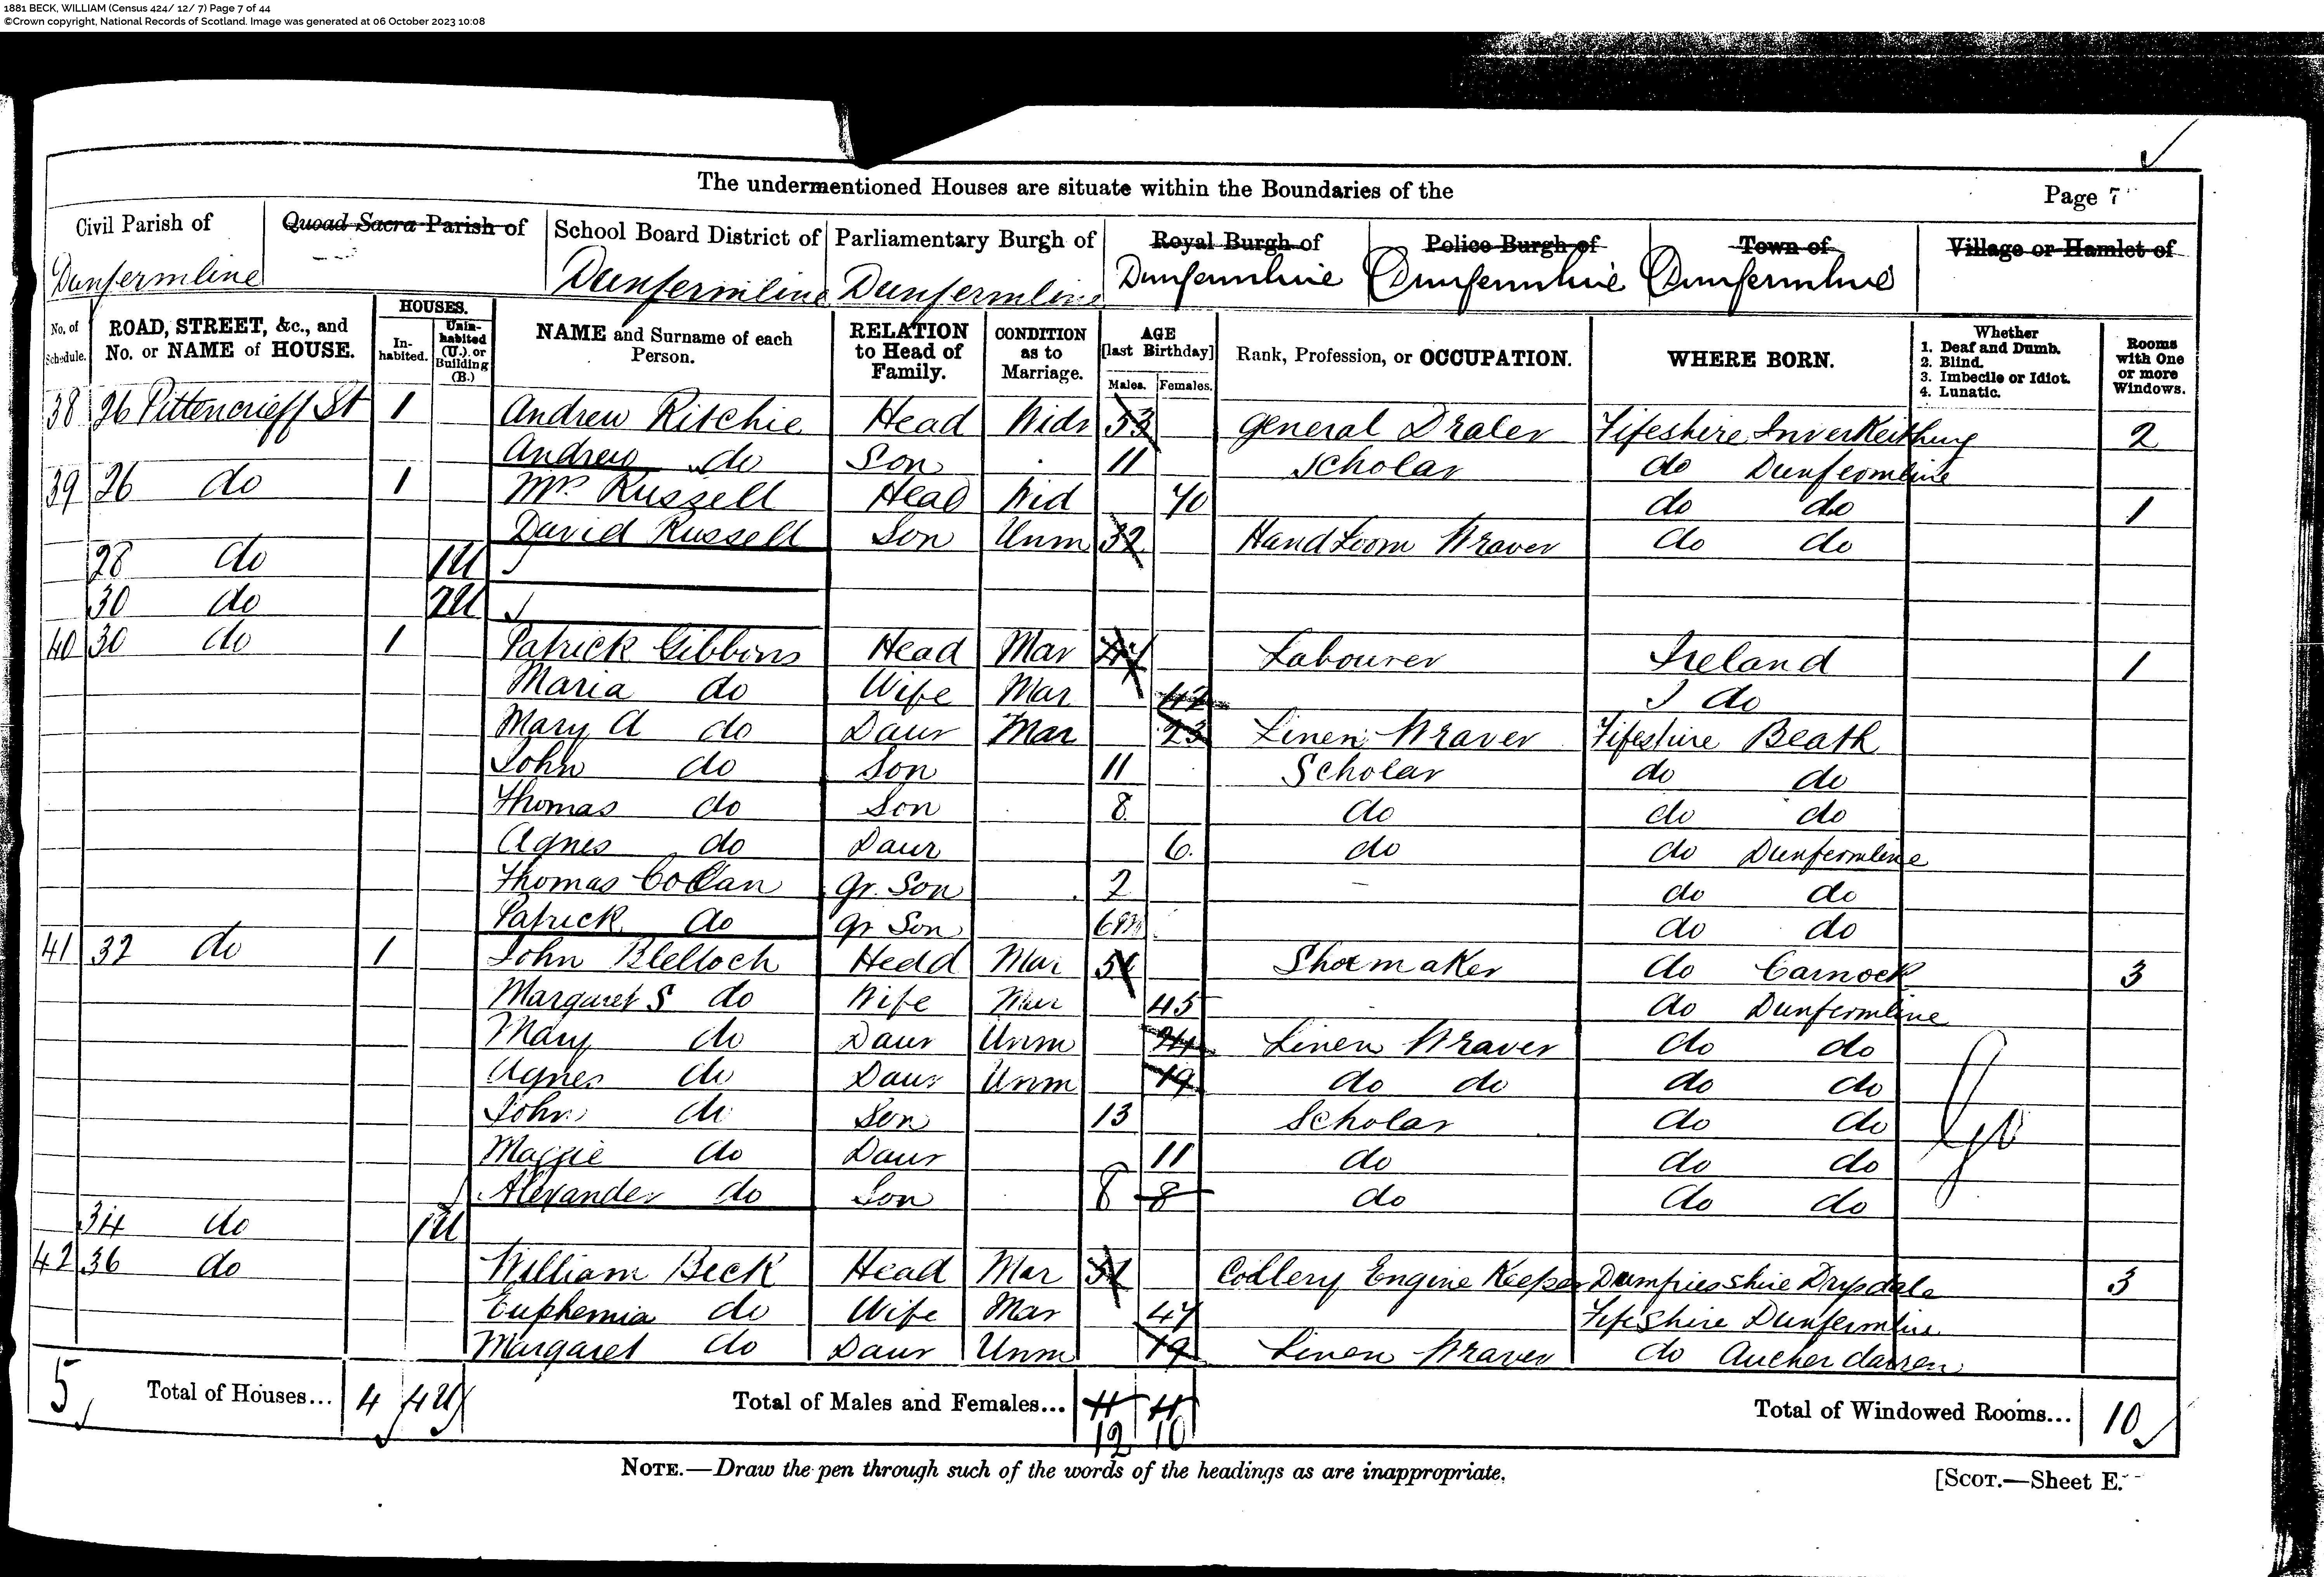 1881 BECK, WILLIAM (Census 424/ 12/ 7) Page 7 of 44
©Crown copyright, National Records of Scotland. Image was generated at 06 October 2023 10:08
The undermentioned Houses are situate within the Boundaries of the Page 7
Civil Parish of Quoad Sacra Parish of School Board District of Parliamentary Burgh of Royal Burgh of Police Burgh of Town of Village or Hamlet of
Dunfermline Dunfermline Dunfermline Dunfermline Dunfermline Dunfermline
No. of Schedule. ROAD, STREET, &c., and No. or NAME of HOUSE. HOUSES. In-habited. Unin-habited (U.) or Building (B.) NAME and Surname of each Person. RELATION to Head of Family. CONDITION as to Marriage. AGE [last Birthday] Males. Females. Rank, Profession, or OCCUPATION. WHERE BORN. Whether 1. Deaf and Dumb. 2. Blind. 3. Imbecile or Idiot. 4. Lunatic. Rooms with One or more Windows.
38 26 Pittencrieff St 1 Andrew Ritchie Head Widr 53 General Dealer Fifeshire Inverkeithing 2
Andrew do Son 11 Scholar do Dunfermline
39 26 do 1 Mrs Russell Head Wid 70 do do 1
David Russell Son Unm 32 Hand Loom Weaver do do
28 do 1U
30 do 2U
40 30 do 1 Patrick Gibbons Head Mar 47 Labourer Ireland 1
Maria do Wife Mar 42 do
Mary A do Daur Mar 23 Linen Weaver Fifeshire Beath
John do Son 11 Scholar do do
Thomas do Son 8 do do do
Agnes do Daur 6 do do Dunfermline
Thomas Gr. Son 2 do do
Patrick do Gr Son 6M do do
41 32 do 1 John Blelloch Hedd Mar Shoemaker do Carnock 3
Margaret S do Wife Mar 45 do Dunfermline
Mary do Daur Unm Linen Weaver do do
Agnes do Daur Unm 19 do do do do
John do Son 13 Scholar do do
Maggie do Daur 11 do do do
Alexander do Son 8 8 do do do
34 do 1U
42 36 do William Beck Head Mar Collery Engine Keeper Dumfriesshire Drysdale 3
Euphemia do Wife Mar 47 Fifeshire Dunfermline
Margaret do Daur Unm 19 Linen Weaver do Aucherdarren
5 Total of Houses... 4 4U Total of Males and Females... 11 11 Total of Windowed Rooms... 10
12 10
NOTE.—Draw the pen through such of the words of the headings as are inappropriate.
[SCOT.—Sheet E.